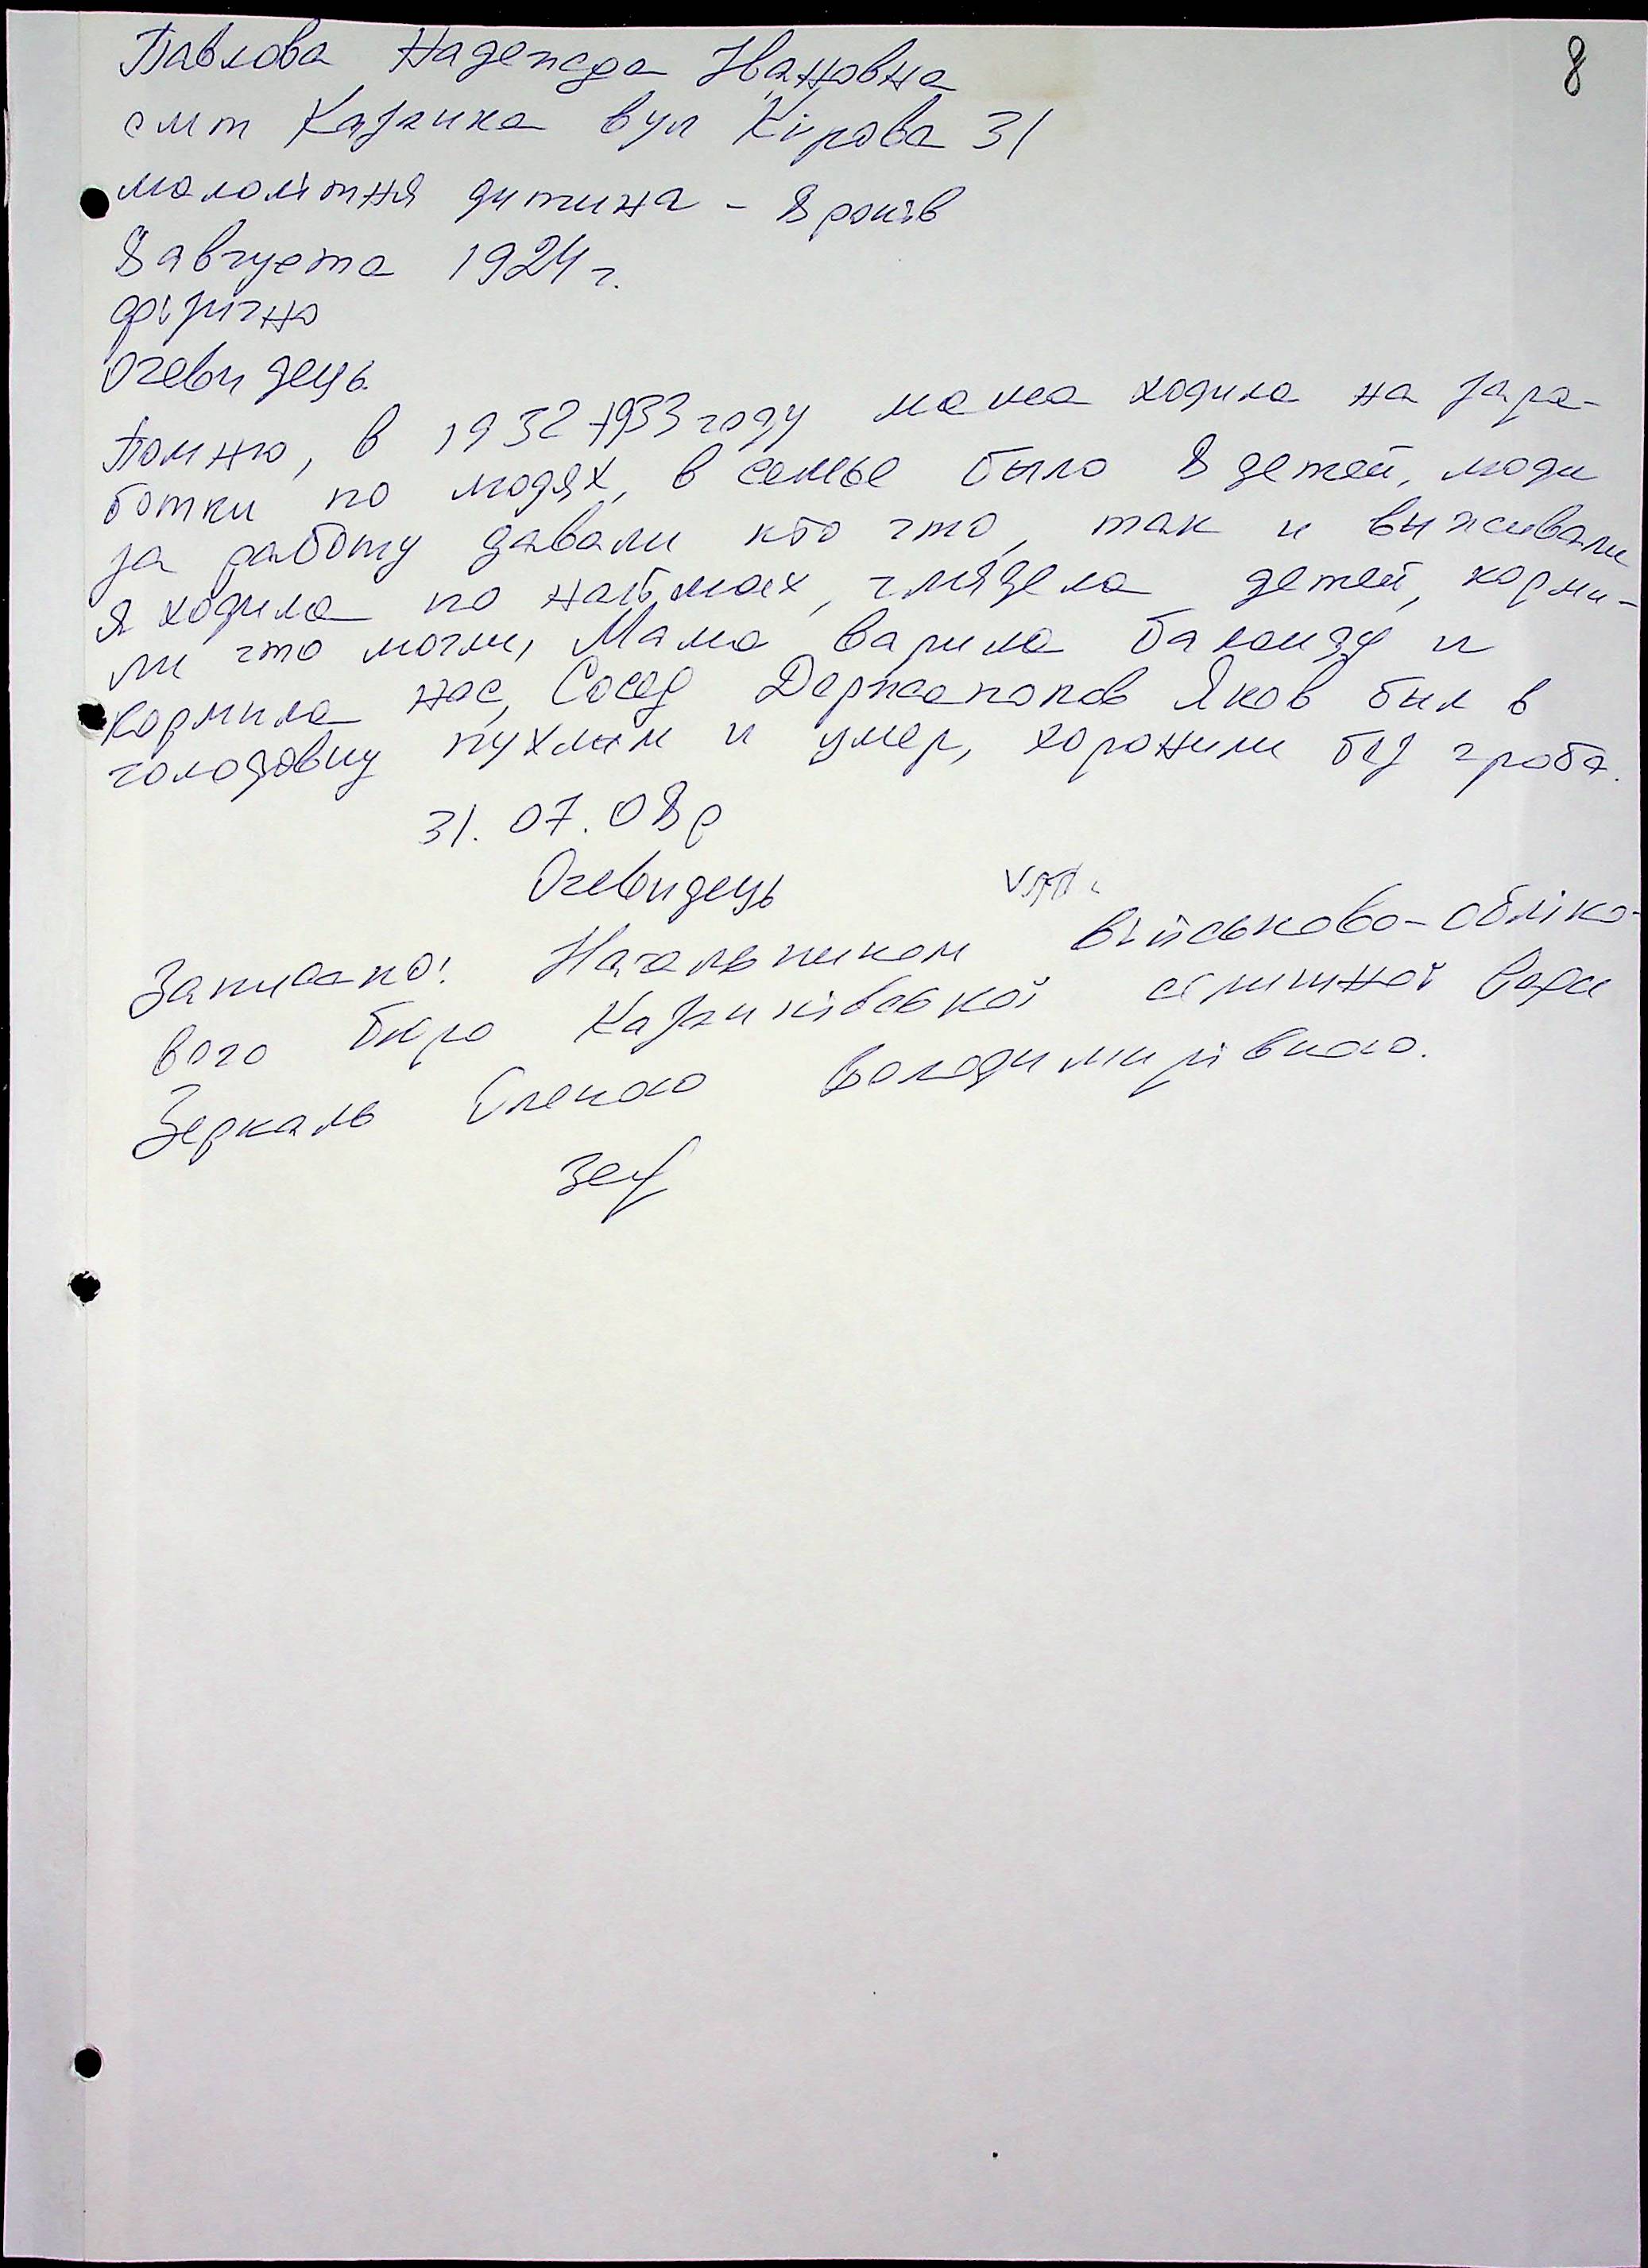 8
Павлова Надежда Ивановна
смт Казанка вул Кірова 31
малолітня дитина - 8 років
8 августа 1924 г.
фізично
Очевидець
Помню, в 1932-1933 году мама ходила на зара-
ботки по людях, в семье было 8 детей, люди
за работу давали кто что, так и выживали
я ходила по наймах, глядела детей, корми-
ли что могли, Мама варила баланду и
кормила нас, Сосед Держаполов Яков был в
голодовку пухлым и умер, хоронили без гроба.
31.07.08р
Очевидець
Записано: Начальником військово-обліко-
вого бюро Казанківської селищної ради
Зеркаль Оленою Володимирівною.